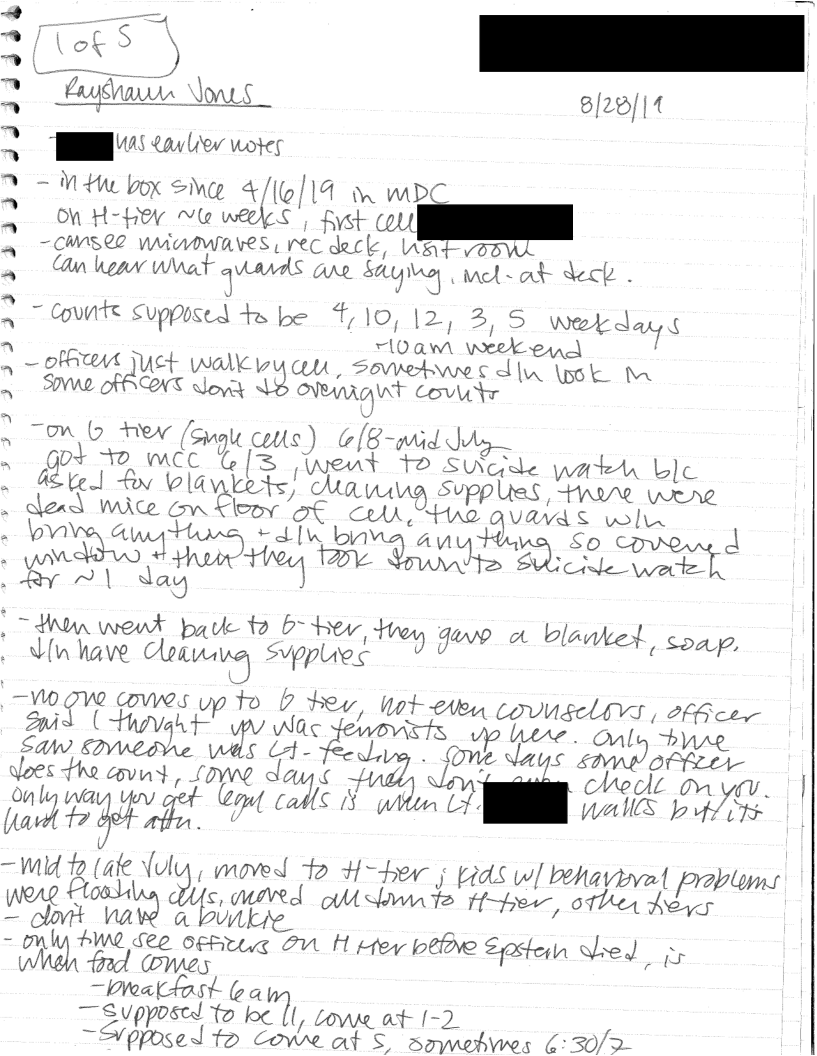 1 of 5
Rayshawn Jones
8/28/19
- has earlier notes
- in the box since 4/16/19 in MDC
on H-tier ~6 weeks, first cell
- can see microwaves, rec deck, visit room
can hear what guards are saying, incl. at desk.
- counts supposed to be 4, 10, 12, 3, 5 weekdays
~10am weekend
- officers just walk by cell, sometimes d/n look in
some officers don't do overnight counts
- on G tier (single cells) 6/8-mid July
got to MCC 6/3, went to suicide watch b/c
asked for blankets, cleaning supplies, there were
dead mice on floor of cell, the guards w/n
bring anything + d/n bring anything so covered
window + then they took down to suicide watch
for ~1 day
- then went back to G-tier, they gave a blanket, soap.
d/n have cleaning supplies
- no one comes up to G tier, not even counselors, officer
said I thought you was terrorists up here. Only time
saw someone was Lt-feeding. some days some officer
does the count, some days they don't even check on you.
only way you get legal calls is when Lt. walks but it's
hard to get attn.
- mid to late July, moved to H-tier; kids w/ behavioral problems
were flooding cells, moved all down to H tier, other tiers
- don't have a bunkie
- only time see officers on H tier before Epstein died, is
when food comes
- breakfast 6am
- supposed to be 11, come at 1-2
- supposed to come at 5, sometimes 6:30/7